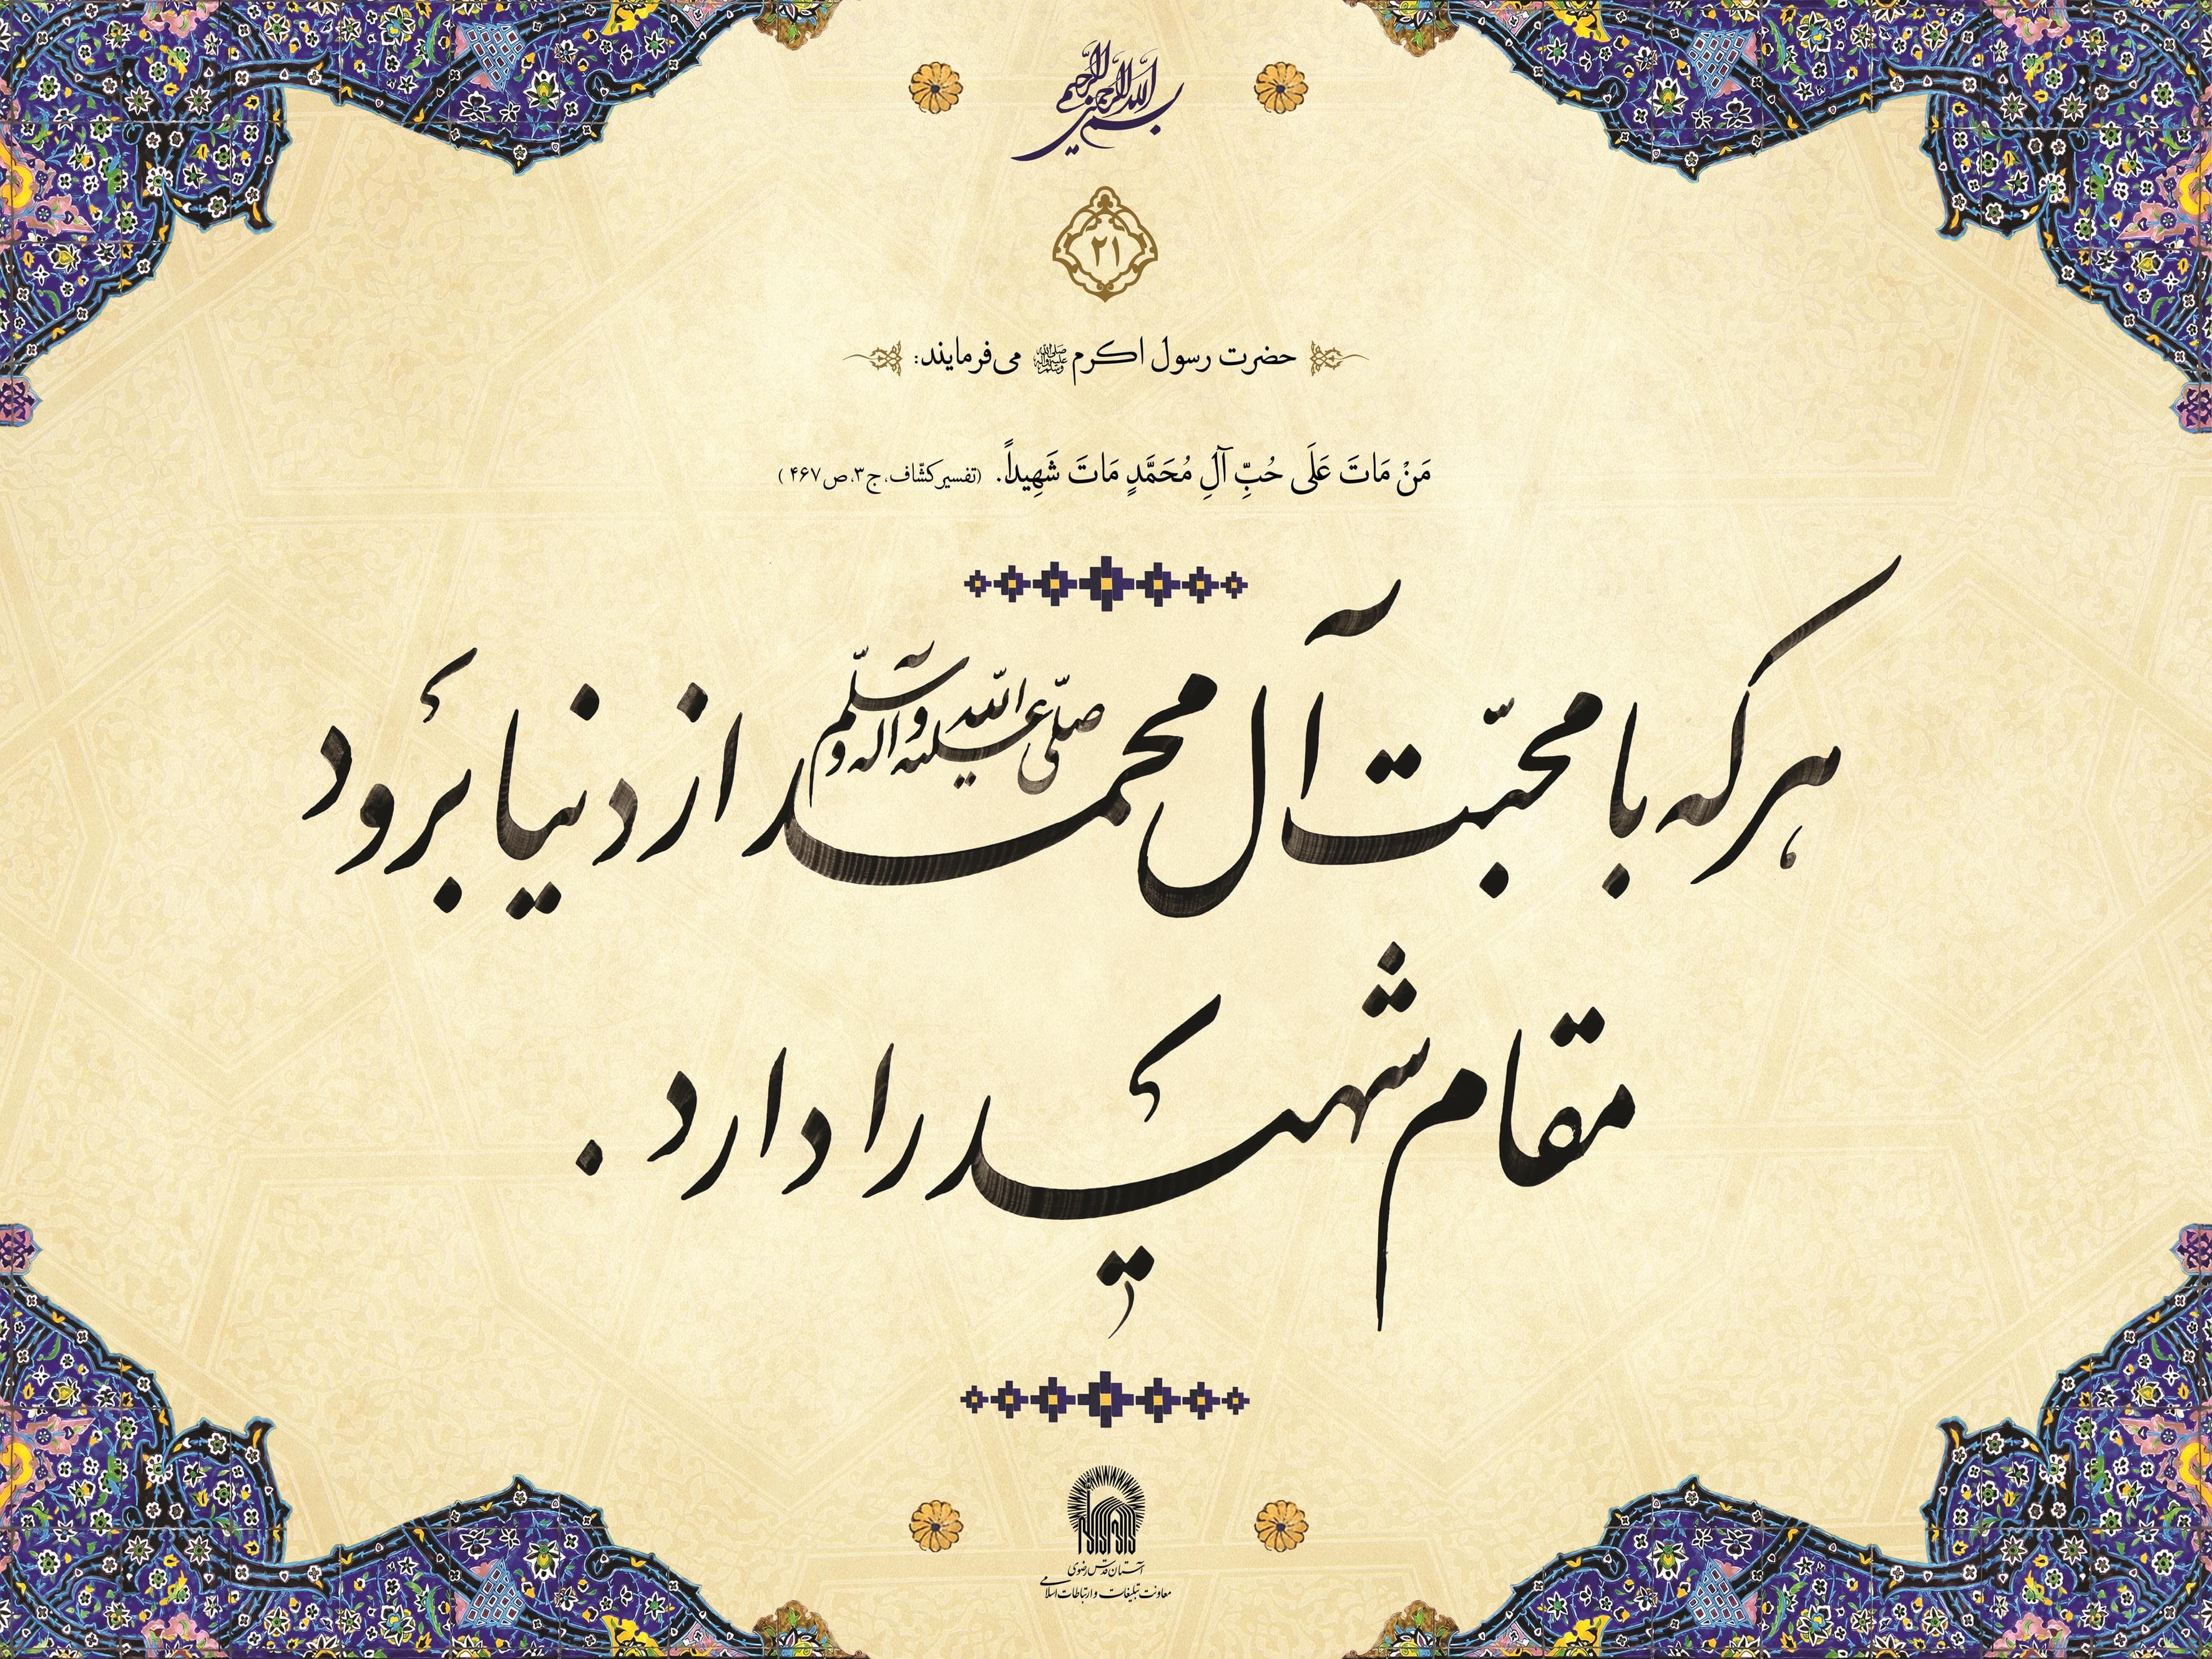 بسم الله الرحمن الرحیم
۲۱
حضرت رسول اکرم ﷺ می‌فرمایند:
مَنْ مَاتَ عَلَی حُبِّ آلِ مُحَمَّدٍ مَاتَ شَهِیداً. (تفسیر کشّاف، ج۳، ص۴۶۷)
هرکه با محبّت آل محمد صلّی الله علیه و آله و سلّم از دنیا برود
مقام شهید را دارد.
آستان قدس رضوی
معاونت تبلیغات و ارتباطات اسلامی